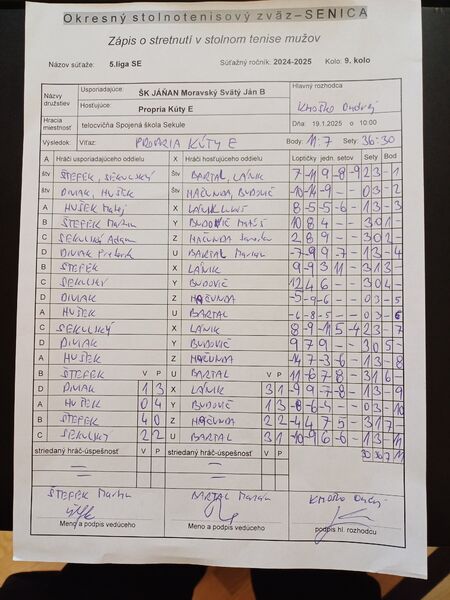 Okresný stolnotenisový zväz–SENICA
Zápis o stretnutí v stolnom tenise mužov
Názov súťaže: 5.liga SE Súťažný ročník: 2024-2025 Kolo: 9. kolo
Názvy družstiev Usporiadajúci: ŠK JÁŇAN Moravský Svätý Ján B Hlavný rozhodca
Hosťujúce: Propria Kúty E
Hracia miestnosť telocvičňa Spojená škola Sekule Dňa :19.1.2025 o :10.00
Výsledok: Víťaz: PROPRIA KÚTY E Body: 11:7 Sety: 36-30
A Hráči usporiadajúceho oddielu X Hráči hosťujúceho oddielu Loptičky jedn. setov Sety Bod
Štv ŠTEFEK, SEKULSKÝ Štv BARTAL, LÁNIK 7 -11 9 -8 -9 2 3 - 1
Štv DIVIAK, HUŠEK Štv MAČUNDA, BUDOVIČ -10 -14 -9 - - 0 3 - 2
A HUŠEK Matej X LÁNIK 8 -5 -5 -6 - 1 3 - 3
B ŠTEFEK Martin Y BUDOVIČ 10 8 4 - - 3 0 1 -
C SEKULSKÝ Adam Z MAČUNDA 2 8 9 - - 3 0 2 -
D DIVIAK U BARTAL Marian -7 -9 9 -7 - 1 3 - 4
B ŠTEFEK X LÁNIK 9 -9 3 11 - 3 1 3 -
C SEKULSKÝ Y BUDOVIČ 12 4 6 - - 3 0 4 -
D DIVIAK Z MAČUNDA -5 -9 -6 - - 0 3 - 5
A HUŠEK U BARTAL -6 -8 -5 - - 0 3 - 6
C SEKULSKÝ X LÁNIK 8 -9 -11 5 -4 2 3 - 7
D DIVIAK Y BUDOVIČ 9 7 9 - - 3 0 5 -
A HUŠEK Z MAČUNDA -14 7 -3 -6 - 1 3 - 8
B ŠTEFEK V P U BARTAL V P 11 -6 7 8 - 3 1 6 -
D DIVIAK 1 3 X LÁNIK 3 1 -9 -9 7 -8 - 1 3 - 9
A HUŠEK 0 4 Y BUDOVIČ 1 3 -8 -6 -4 - - 0 3 - 10
B ŠTEFEK 4 0 Z MAČUNDA 2 2 -4 4 7 5 - 3 1 7 -
C SEKULSKÝ 2 2 U BARTAL 3 1 -10 9 -6 -6 - 1 3 - 11
striedaný hráč-úspešnosť V P striedaný hráč-úspešnosť V P 30 36 7 11
ŠTEFEK Martin BARTAL Marian
Meno a podpis vedúceho Meno a podpis vedúceho podpis hl. rozhodcu